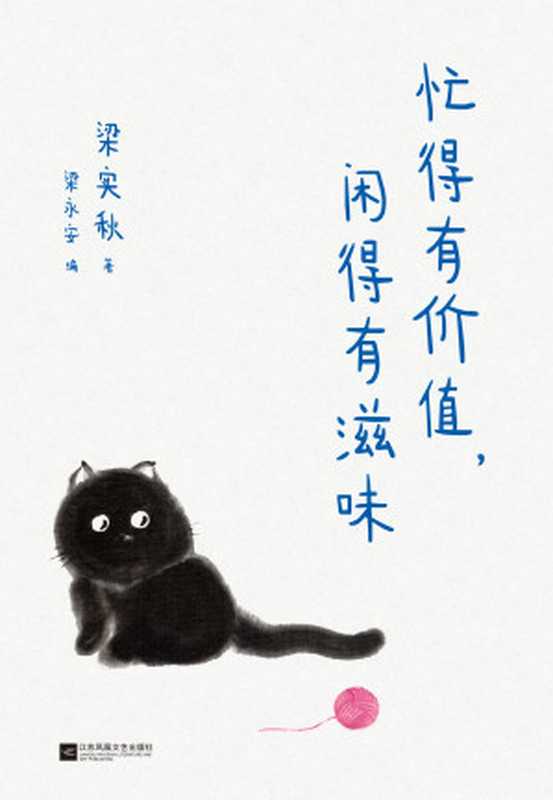 忙得有价值，
闲得有滋味
梁实秋 著
梁永安 编
江苏凤凰文艺出版社